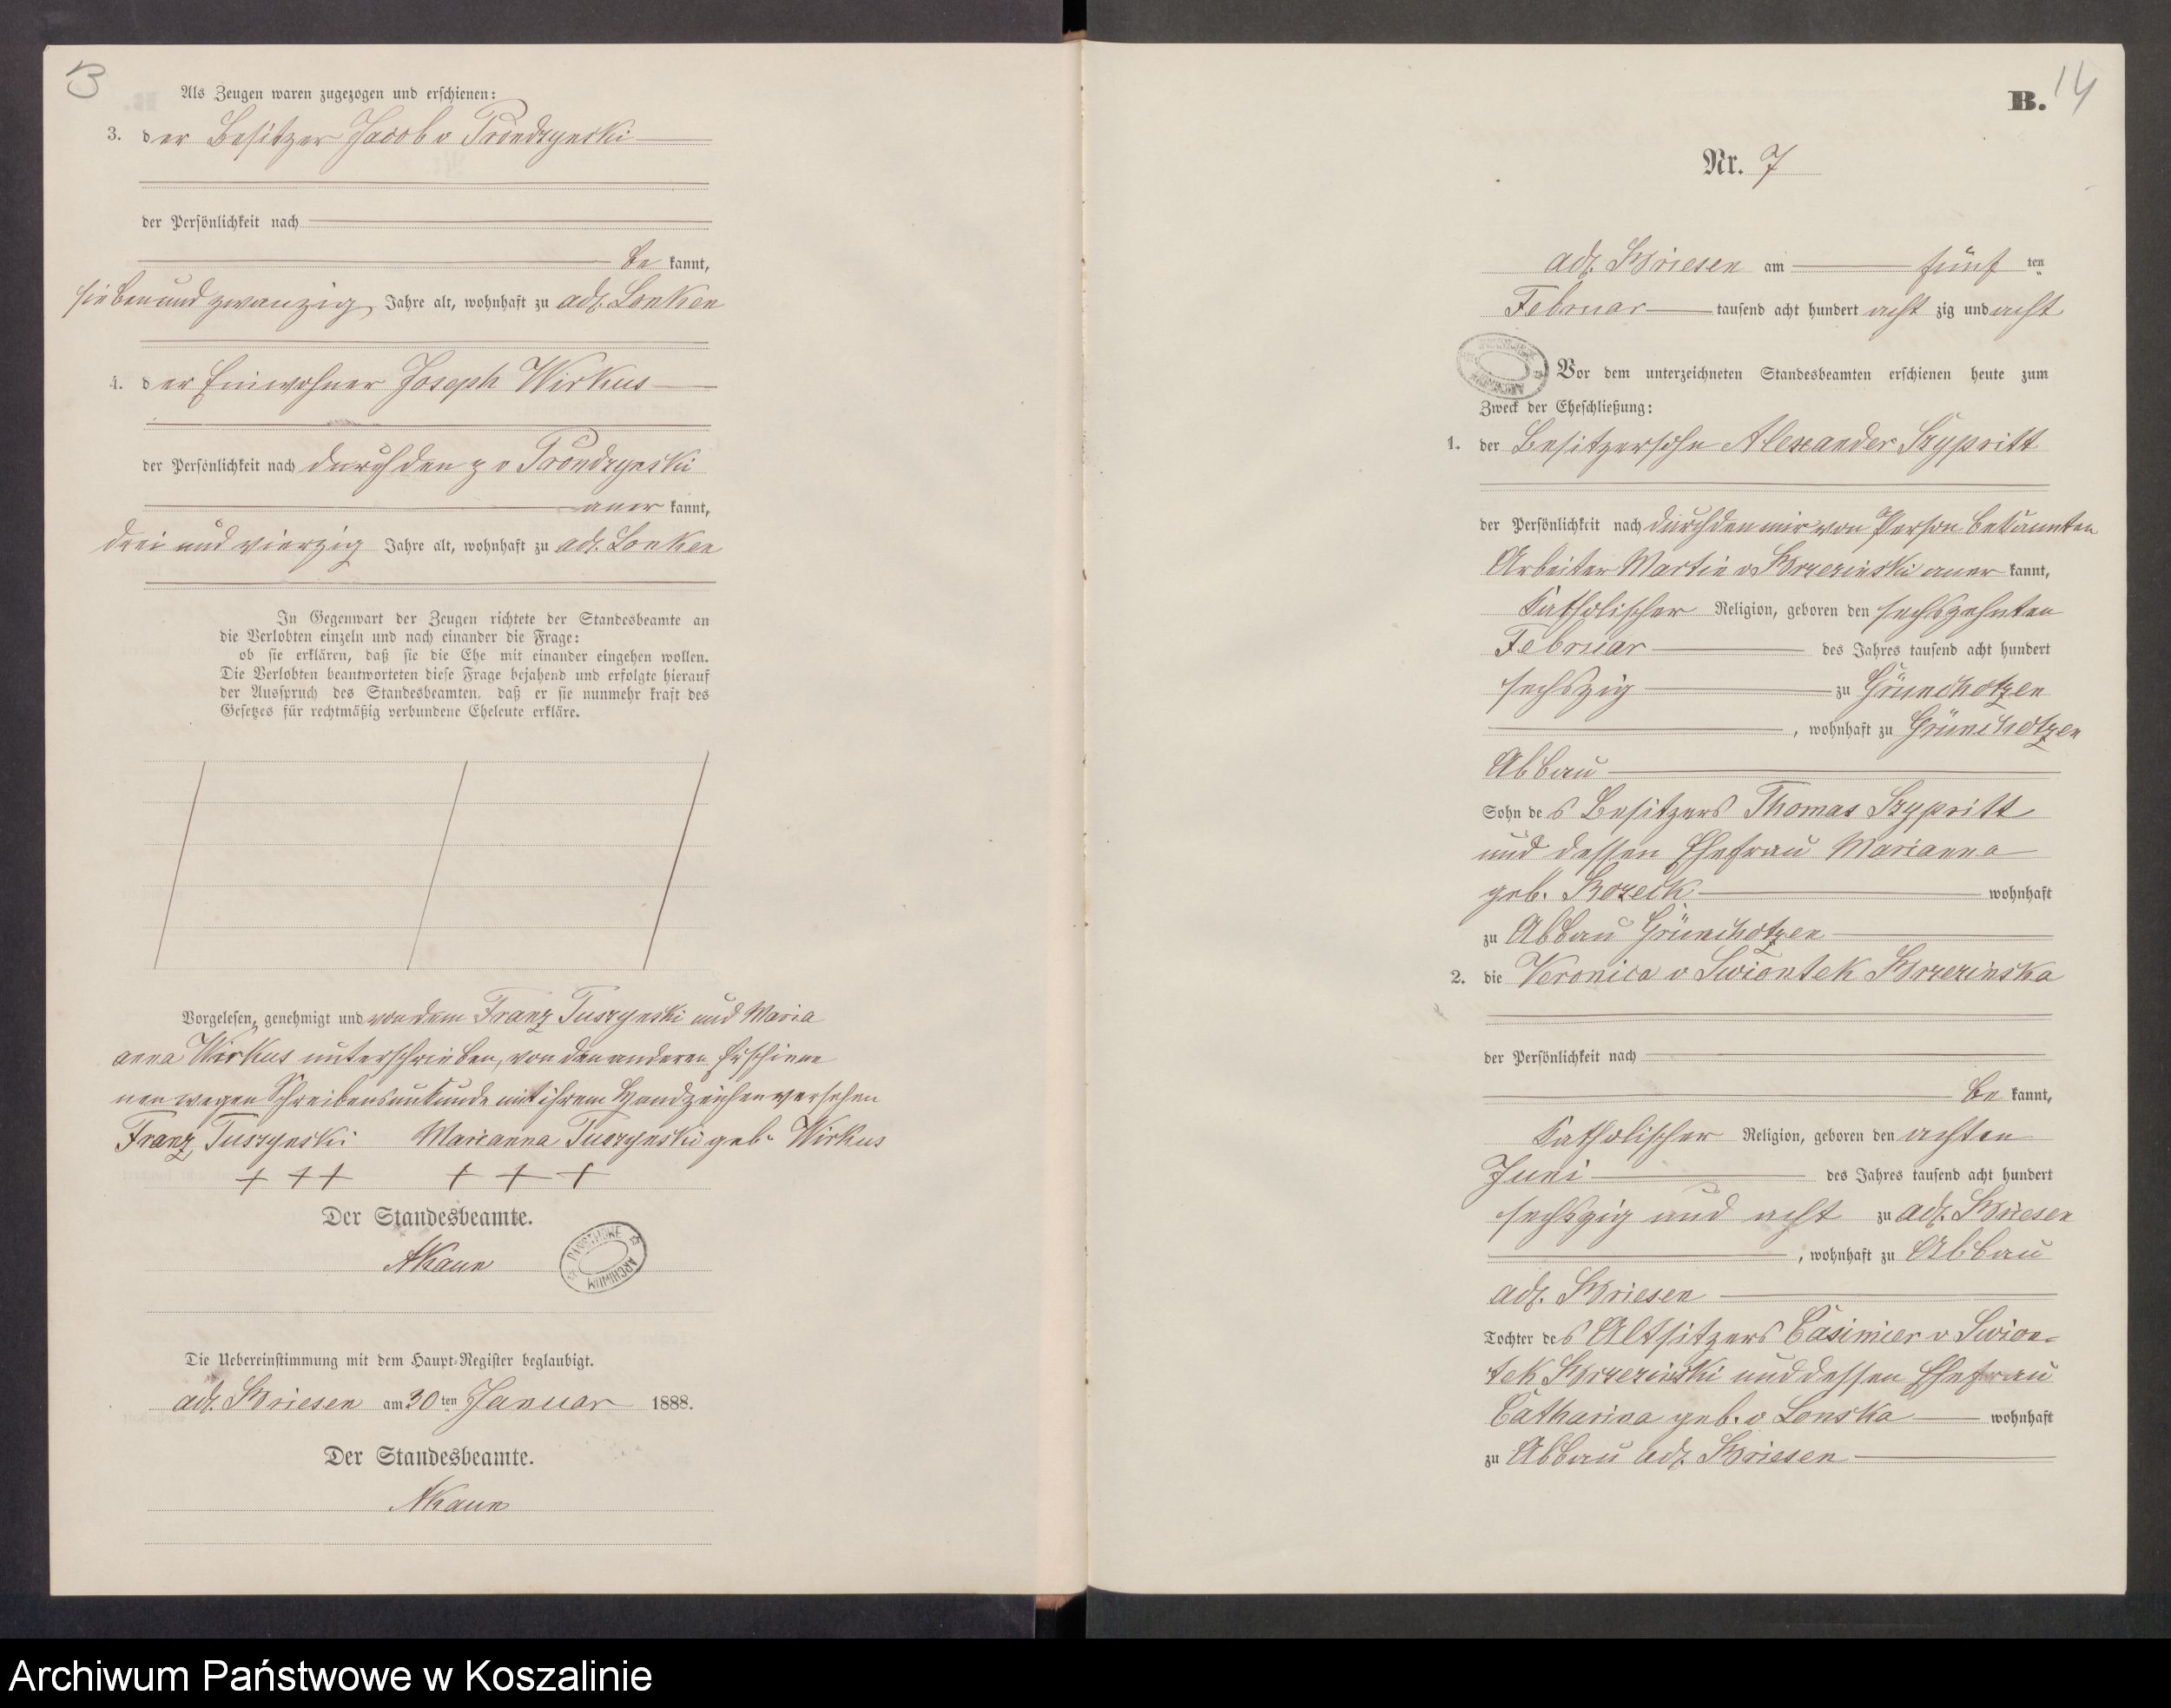 Als Zeugen waren zugezogen und erschienen:
3. der Besitzer Jacob v Prondzynski
der Persönlichkeit nach
be kannt,
sieben und zwanzig Jahre alt, wohnhaft zu adl. Lonken
4. der Einwohner Joseph Wirkus
der Persönlichkeit nach durch den p v Prondzynski
aner kannt,
drei und vierzig Jahre alt, wohnhaft zu adl. Lonken
In Gegenwart der Zeugen richtete der Standesbeamte an
die Verlobten einzeln und nach einander die Frage:
ob sie erklären, daß sie die Ehe mit einander eingehen wollen.
Die Verlobten beantworteten diese Frage bejahend und erfolgte hierauf
der Ausspruch des Standesbeamten, daß er sie nunmehr kraft des
Gesetzes für rechtmäßig verbundene Eheleute erkläre.
Vorgelesen, genehmigt und von dem Franz Tuszynski und Mari
anna Wirkus unterschrieben, von den anderen Erschiene
nen wegen Schreibensunkunde mit ihrem Handzeichen versehen
Franz Tuszynski Marianna Tuszynski geb. Wirkus
+ + + + + +
Der Standesbeamte.
ARCHIWUM PAŃSTWOWE
Die Uebereinstimmung mit dem Haupt-Register beglaubigt.
adl. Briesen am 30 ten Januar 1888.
Der Standesbeamte.
B. 14
Nr. 7
adl. Briesen am fünf ten
Februar tausend acht hundert acht zig und acht
Vor dem unterzeichneten Standesbeamten erschienen heute zum
Zweck der Eheschließung:
1. der Besitzersohn Alexander Szypritt
der Persönlichkeit nach durch den mir von Person bekannten
Arbeiter Martin v Brzezinski aner kannt,
katholischer Religion, geboren den sechszehnten
Februar des Jahres tausend acht hundert
sechszig zu Grünchotzen
, wohnhaft zu Grünchotzen
Abbau
Sohn des Besitzers Thomas Szypritt
und dessen Ehefrau Marianna
geb. wohnhaft
zu Abbau Grünchotzen
2. die Veronica v Swiontek Brzezinska
der Persönlichkeit nach
be kannt,
katholischer Religion, geboren den achten
Juni des Jahres tausend acht hundert
sechszig und acht zu adl. Briesen
, wohnhaft zu Abbau
adl. Briesen
Tochter des Altsitzers Casimier v Swion-
tek Brzezinski und dessen Ehefrau
Catharina geb. v Lonska wohnhaft
zu Abbau adl. Briesen
Archiwum Państwowe w Koszalinie